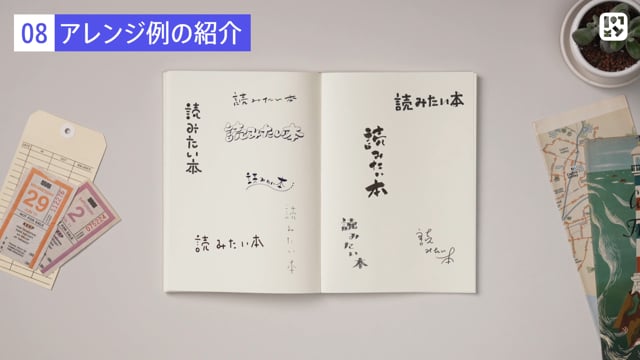 08 アレンジ例の紹介
読みたい本
読みたい本
読みたい本
読みたい本
読みたい本
読みたい本
読みたい本
読みたい本
読みたい本
読みたい本
29
2